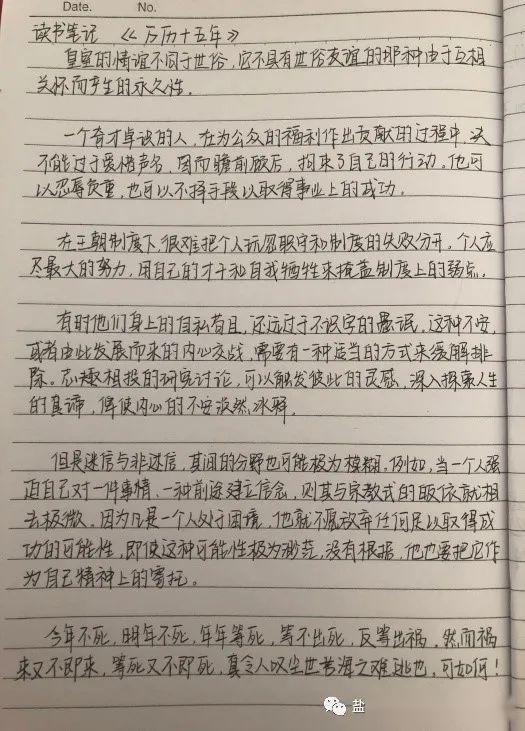 Date.  No.
读书笔记 《万历十五年》
皇室的情谊不同于世俗，它不具有世俗友谊的那种由于互相
关怀而产生的永久性。
一个奇才卓识的人，在为公众的福利作出贡献的过程中，决
不能过于爱惜声名，因而瞻前顾后，拘束了自己的行动。他可
以忍辱负重，也可以不择手段以取得事业上的成功。
在王朝制度下，很难把个人玩忽职守和制度的失败分开，个人应
尽最大的努力，用自己的才干和自我牺牲来掩盖制度上的弱点。
有时他们身上的自私苟且，还远过于不识字的愚氓，这种不安，
或者由此发展而来的内心交战，需要有一种适当的方式来缓解排
除。志趣相投的研究讨论，可以触发彼此的灵感，深入探索人生
的真谛，俾使内心的不安涣然冰释。
但是迷信与非迷信，其间的分野也可能极为模糊。例如，当一个人强
迫自己对一件事情、一种前途建立信念，则其与宗教式的皈依就相
去极微。因为凡是一个人处于困境，他就不愿放弃任何足以取得成
功的可能性，即使这种可能性极为渺茫，没有根据，他也要把它作
为自己精神上的寄托。
今年不死，明年不死，年年等死，等不出死，反等出祸，然而祸
来又不即来，等死又不即死，真令人叹尘世苦海之难逃也，可如何！
盐